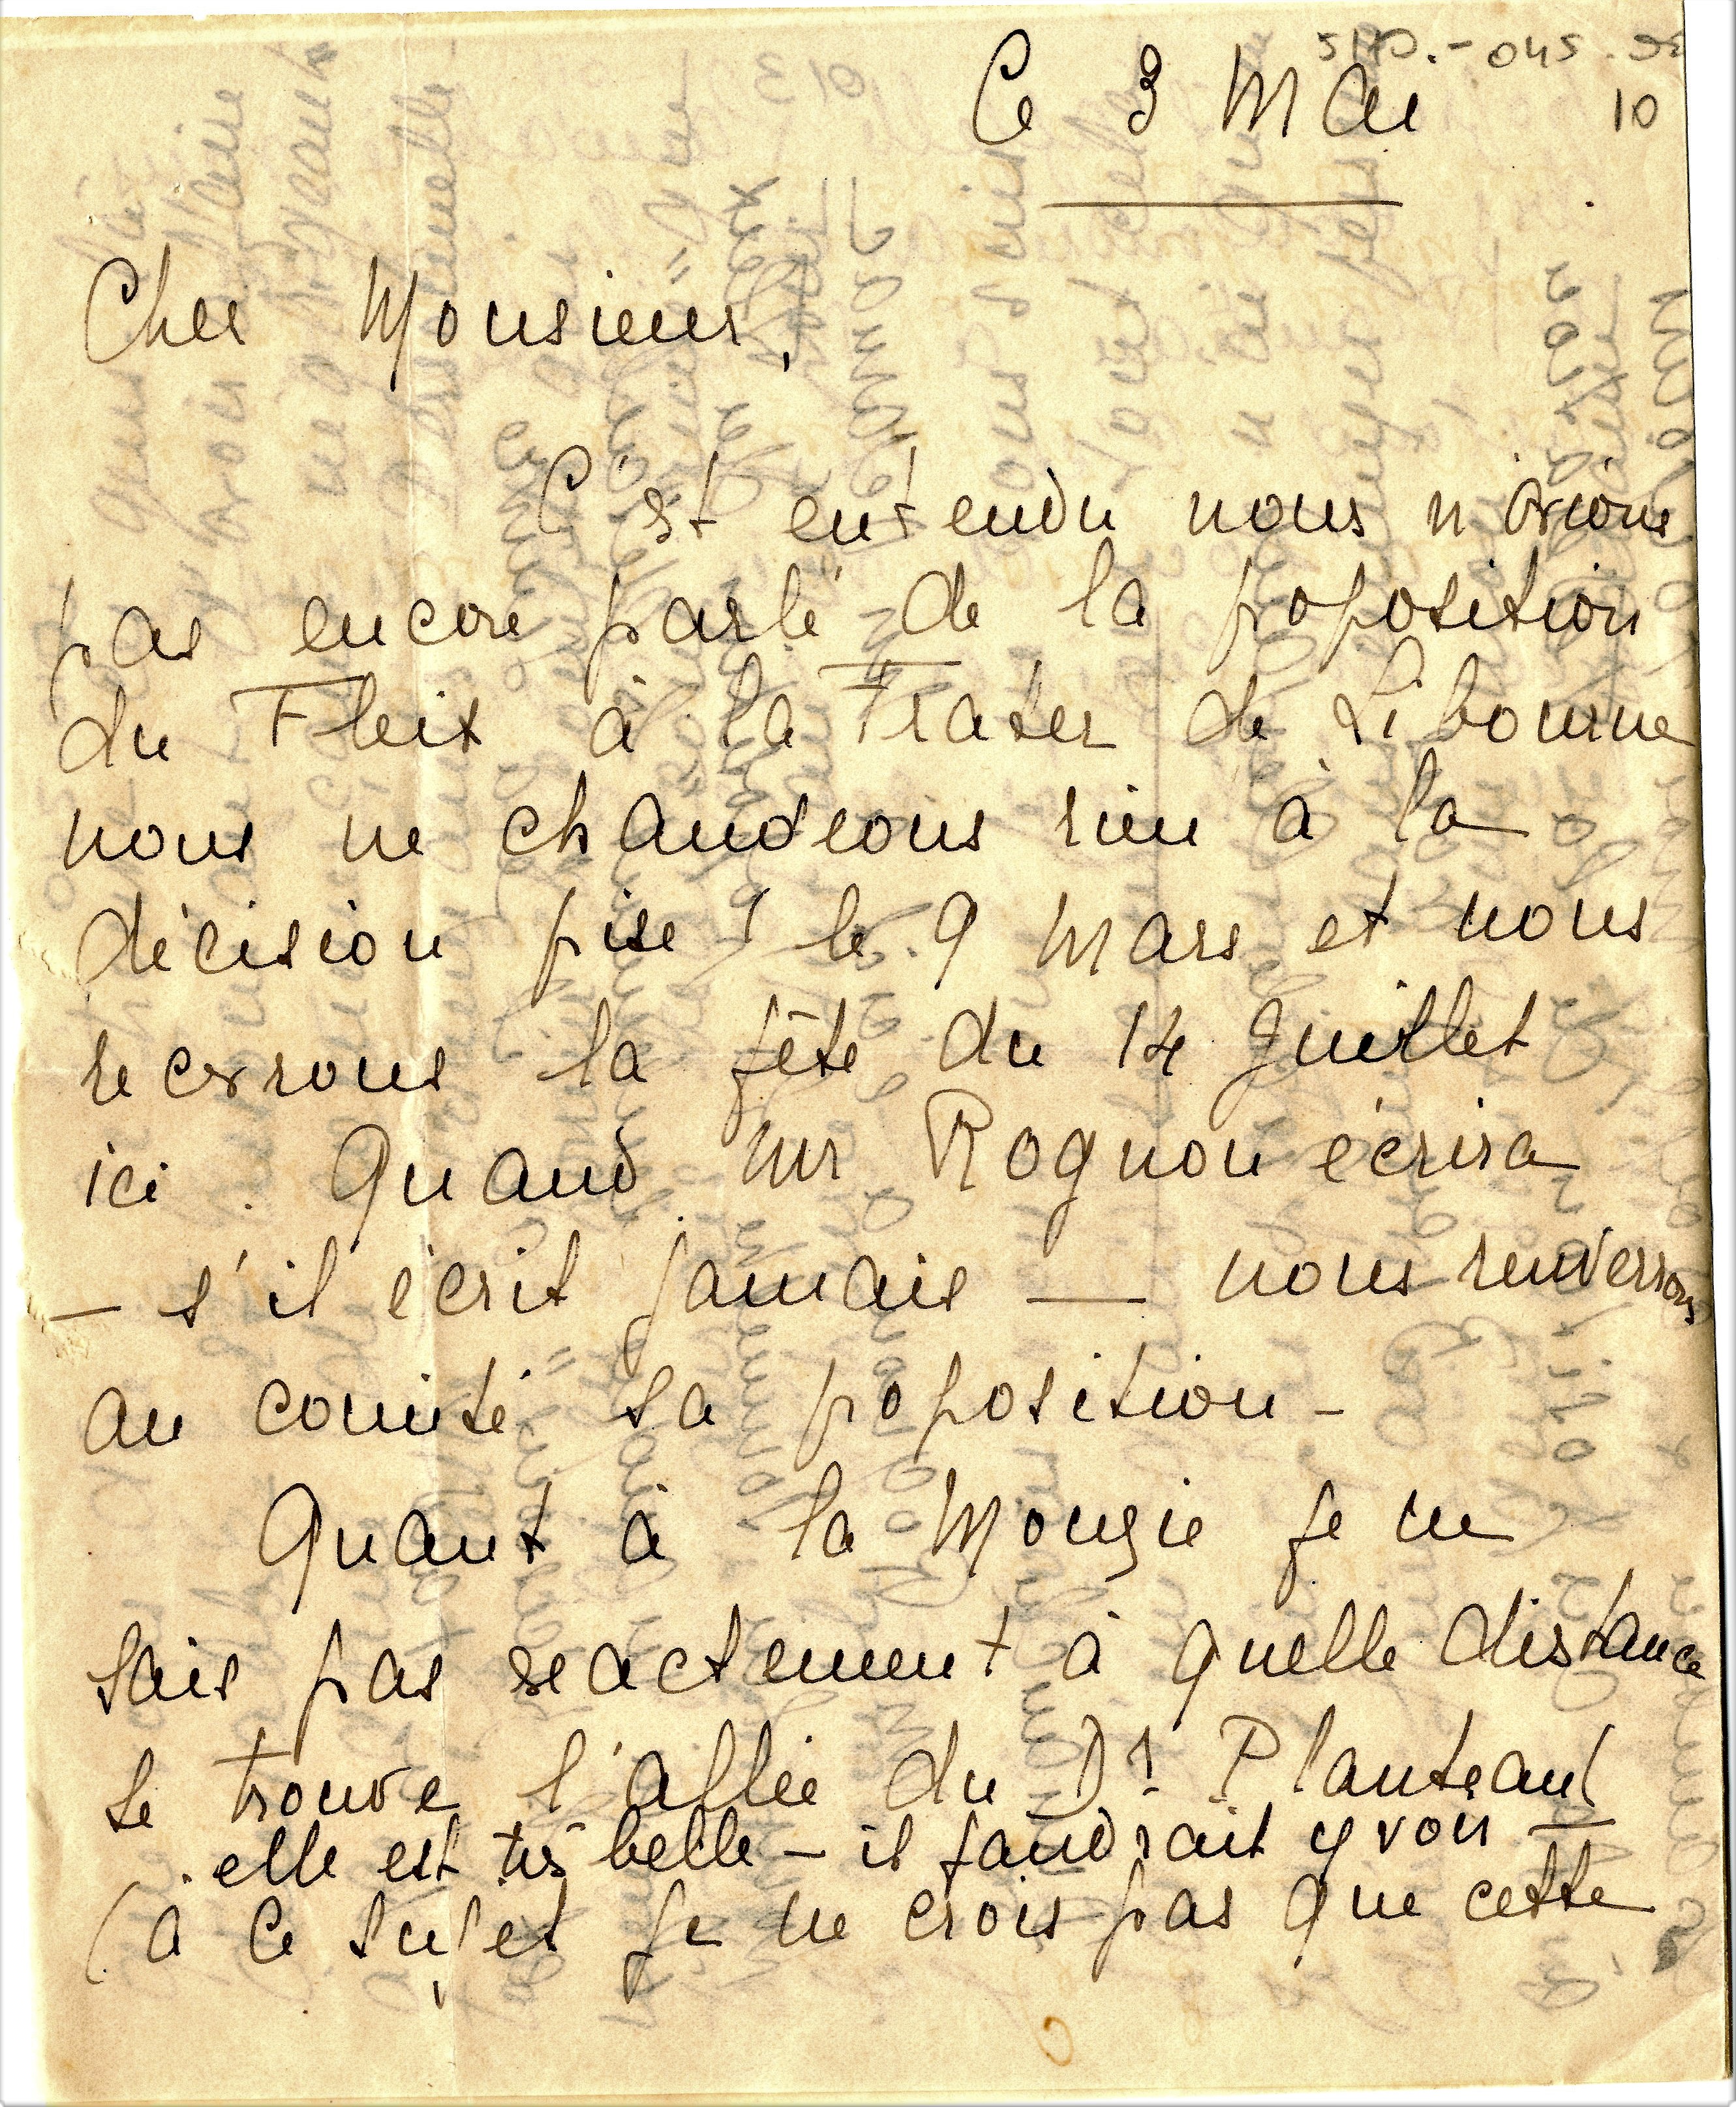 Ce 3 Mai
10
Cher Monsieur,
C'est entendu nous n'avions
pas encore parlé de la proposition
du Fleix à la Frater de Libourne
nous ne changeons rien à la
décision prise le 9 Mars et nous
recevrons la fête du 14 Juillet
ici. Quand Mr Rognon écrira
— s'il écrit jamais — nous renverrons
au comité sa proposition -
Quant à la Mougie je ne
sais pas exactement à quelle distance
se trouve l'allée du Dr Planteau
elle est très belle - il faudrait y voir —
(à ce sujet je ne crois pas que cette